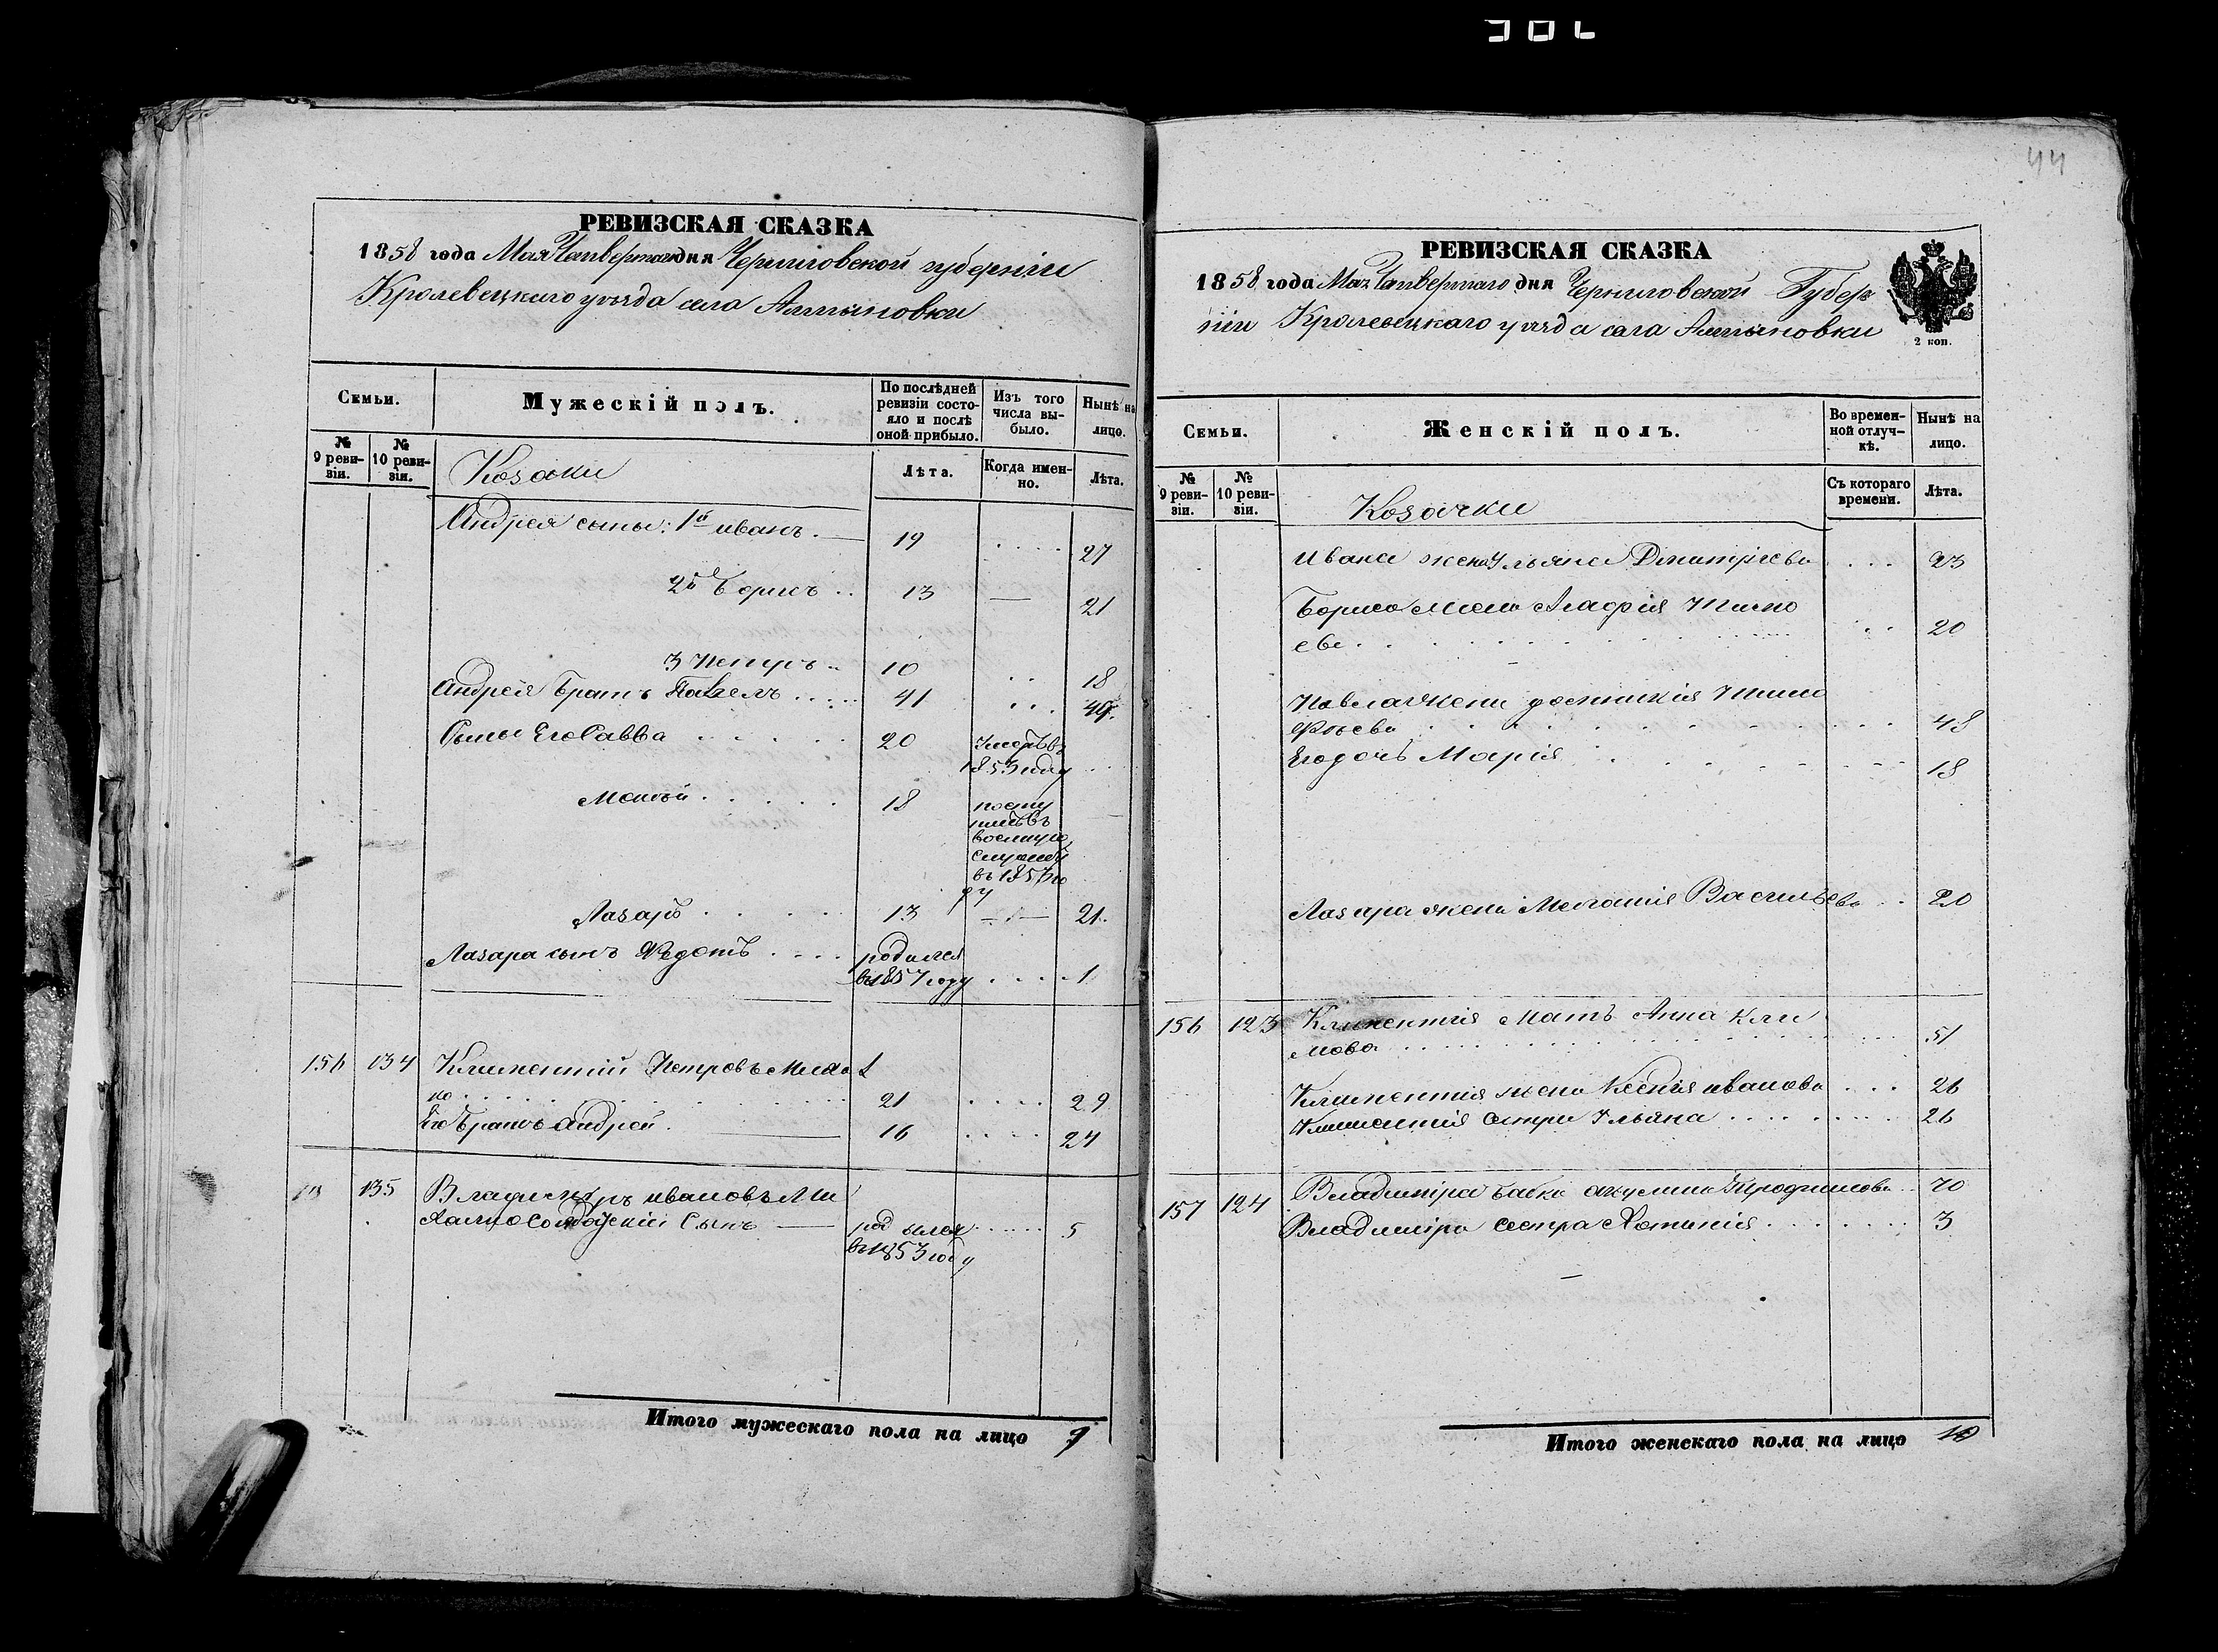 44
РЕВИЗСКАЯ СКАЗКА
1858 года Мая Четвертаго дня Черниговской губерніи
Кролевецкаго уезда села Алтыновки
Семьи.
Мужескій полъ.
По послѣдней ревизіи состояло и послѣ оной прибыло.
Изъ того числа выбыло.
Нынѣ на лицо.
№ 9 ревизіи.
№ 10 ревизіи.
Козаки
Лѣта.
Когда именно.
Лѣта.
Андрея сыны: 1й иванъ. 19 .... 27
2й Борисъ .. 13 — 21
3 Петръ .. 10 .. 18
Андрея Братъ Павелъ ..... 41 ... 49.
Сыны Его Савва ..... 20 Умеръ въ
1853 году ..
Мокѣй ..... 18 посту
пилъ въ
военную
службу
въ 1857 го
ду
Лазарь ..... 13 — 21.
Лазара сынъ Федотъ .... родился
въ 1857 году .... 1
156 134 Климентій Петровъ
ко ..... 21 .... 29
Его Братъ Андрей. 16 .... 24
135 Владиміръ ивановъ Ми
халко Солдатскій Сынъ — родился ..... 5
въ 1853 году
Итого мужескаго пола на лицо 9
РЕВИЗСКАЯ СКАЗКА
1858 года Мая Четвертаго дня Черниговской Губер
ніи Кролевецкаго уезда села Алтыновки
2 коп.
Семьи.
Женскій полъ.
Во временной отлучкѣ.
Нынѣ на лицо.
№ 9 ревизіи.
№ 10 ревизіи.
Козачки
Съ котораго времени.
Лѣта.
Ивана жена Ульяна Дмитріева ... 23
Бориса жена Агафія Тимо
ева ..... 20
Павла Жена Тимо
фѣева ..... 48
Его дочь Марія ..... 18
Лазара жена Мелания Васильева .. 20
156 123 Климентія Мать Анна Кли
мова ..... 51
Климентия жена Ксенія иванова ... 26
Климентія сестра Ульяна ..... 26
157 124 Владиміра бабка акулина Трофимова .. 70
Владиміра сестра Хотинія ..... 3
Итого женскаго пола на лицо 10